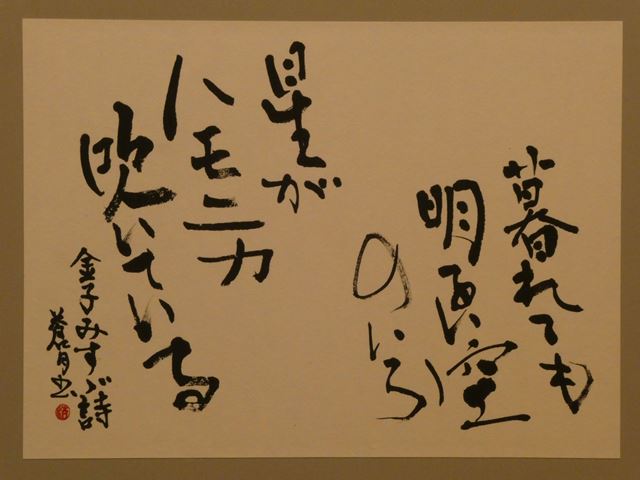 暮れても
明るい空
のいろ
星が
ハモニカ
吹いている
金子みすゞ詩
蒼月書